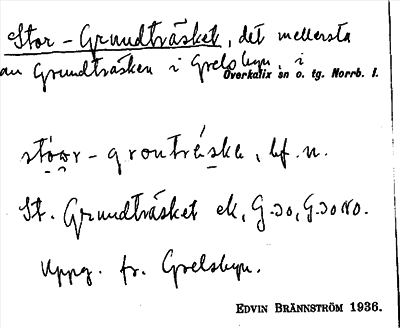 Stor-Grundträsket, det mellersta
av Grundträsken i Grelsbyn, i
Överkalix sn o. tg. Norrb. l.
stoor-grouträska, bf. n.
St. Grundträsket ek, G.30, G.30 NO.
Uppg. fr. Grelsbyn.
EDVIN BRÄNNSTRÖM 1936.